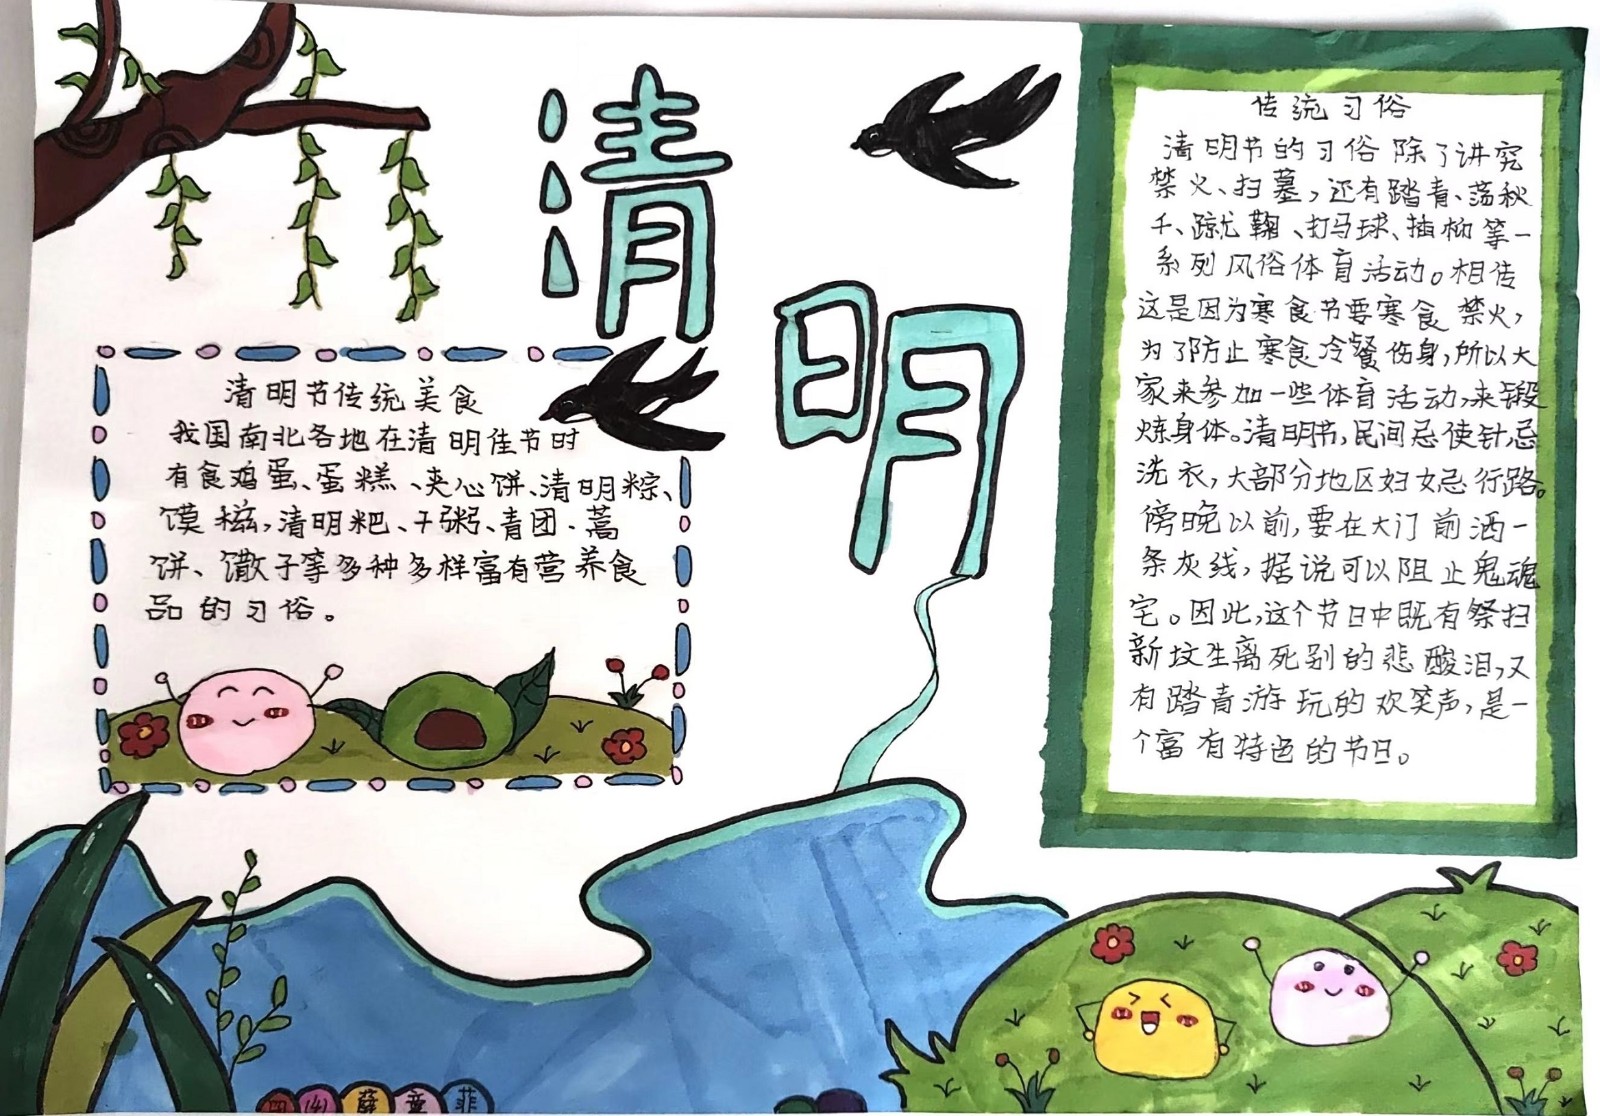 清明
清明节传统美食
我国南北各地在清明佳节时
有食鸡蛋、蛋糕、夹心饼、清明粽、
馍糍,清明粑、干粥、青团、蒿
饼、馓子等多种多样富有营养食
品的习俗。
传统习俗
清明节的习俗除了讲究
禁火、扫墓,还有踏青、荡秋
千、蹴鞠、打马球、插柳等一
系列风俗体育活动。相传
这是因为寒食节要寒食禁火,
为了防止寒食冷餐伤身,所以大
家来参加一些体育活动,来锻
炼身体。清明节,民间忌使针,忌
洗衣,大部分地区妇女忌行路。
傍晚以前,要在大门前洒一
条灰线,据说可以阻止鬼魂
宅。因此,这个节日中既有祭扫
新坟生离死别的悲酸泪,又
有踏青游玩的欢笑声,是一
个富有特色的节日。
四(4)薛意菲